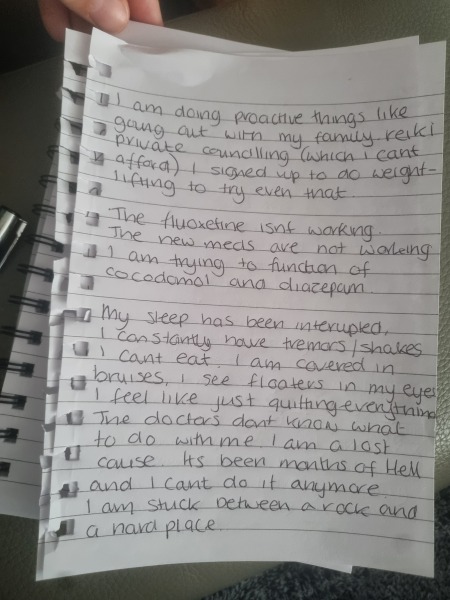 I am doing proactive things like
going out with my family reiki
private councilling (which i cant
afford) I signed up to do weight-
lifting to try even that.
The fluoxetine isnt working.
The new meds are not working
I am trying to function of
cocodomol and diazepam.
My sleep has been interupted,
I constantly have tremors/shakes
I cant eat. I am covered in
bruises, i see floaters in my eyes
I feel like just quitting everything
The doctors dont know what
to do with me I am a lost
cause. Its been months of Hell
and I cant do it anymore
I am stuck between a rock and
a hard place.